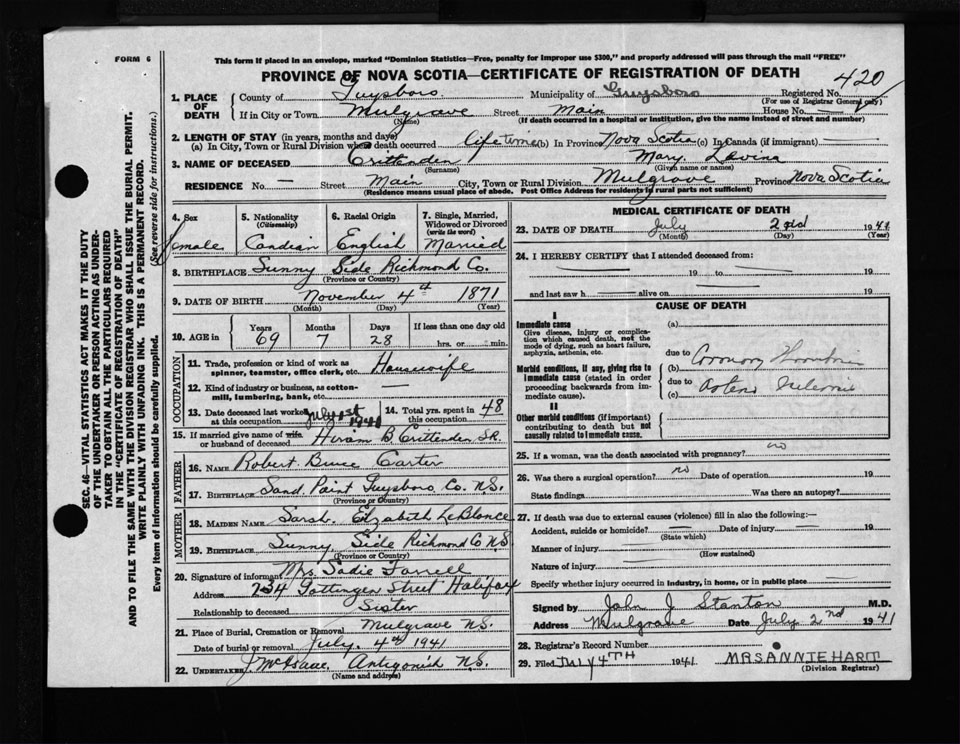 FORM 6
This form if placed in an envelope, marked "Dominion Statistics—Free, penalty for improper use $300," and properly addressed will pass through the mail "FREE"
PROVINCE OF NOVA SCOTIA—CERTIFICATE OF REGISTRATION OF DEATH
420
1. PLACE OF DEATH
County of Guysboro Municipality of Guysboro Registered No.
(For use of Registrar General only)
If in City or Town Mulgrave Street Main House No. —
(Name) (If death occurred in a hospital or institution, give the name instead of street and number)
2. LENGTH OF STAY (in years, months and days)
(a) In City, Town or Rural Division where death occurred life time (b) In Province Nova Scotia (c) In Canada (if immigrant)
3. NAME OF DECEASED Crittenden Mary Lavina
(Surname) (Given name or names)
RESIDENCE No. — Street Main City, Town or Rural Division Mulgrave Province Nova Scotia
(Residence means usual place of abode. Post Office Address for residents in rural parts not sufficient)
4. Sex female
5. Nationality (Citizenship) Candian
6. Racial Origin English
7. Single, Married, Widowed or Divorced (write the word) Married
8. BIRTHPLACE Sunny Side Richmond Co.
(Province or Country)
9. DATE OF BIRTH November 4th 1871
(Month) (Day) (Year)
10. AGE in Years 69 Months 7 Days 28 If less than one day old hrs. or min.
OCCUPATION
11. Trade, profession or kind of work as spinner, teamster, office clerk, etc. Housewife
12. Kind of industry or business, as cotton-mill, lumbering, bank, etc.
13. Date deceased last worked at this occupation July 1st 1941
14. Total yrs. spent in this occupation 48
15. If married give name of wife or husband of deceased Hiram B Crittenden Sr.
FATHER
16. NAME Robert Bruce Carter
17. BIRTHPLACE Sand Point Guysboro Co. N.S.
(Province or Country)
MOTHER
18. MAIDEN NAME Sarah Elizabeth LeBlance
19. BIRTHPLACE Sunny Side Richmond Co N.S.
(Province or Country)
20. Signature of informant Mrs. Sadie Farrell
Address 234 Gottingen Street Halifax
Relationship to deceased Sister
21. Place of Burial, Cremation or Removal Mulgrave N.S.
Date of burial or removal July 4th 1941
22. UNDERTAKER J McIsaac Antigonish N.S.
(Name and address)
MEDICAL CERTIFICATE OF DEATH
23. DATE OF DEATH July 2nd 1941
(Month) (Day) (Year)
24. I HEREBY CERTIFY that I attended deceased from:
— 19 to — 19
and last saw h — alive on — 19
CAUSE OF DEATH
I
Immediate cause
Give disease, injury or complication which caused death, not the mode of dying, such as heart failure, asphyxia, asthenia, etc.
(a)
due to Coronary
Morbid conditions, if any, giving rise to immediate cause (stated in order proceeding backwards from immediate cause).
(b)
due to
(c)
II
Other morbid conditions (if important) contributing to death but not causally related to immediate cause.
25. If a woman, was the death associated with pregnancy? no
26. Was there a surgical operation? no Date of operation 19
State findings Was there an autopsy?
27. If death was due to external causes (violence) fill in also the following:—
Accident, suicide or homicide? — Date of injury — 19
(State which)
Manner of injury
(How sustained)
Nature of injury
Specify whether injury occurred in industry, in home, or in public place —
Signed by John J Stanton M.D.
Address Mulgrave Date July 2nd 1941
28. Registrar's Record Number
29. Filed JULY 4TH 1941. MRS ANNIE HART
(Division Registrar)
SEC. 46—VITAL STATISTICS ACT MAKES IT THE DUTY
OF THE UNDERTAKER OR PERSON ACTING AS UNDER-
TAKER TO OBTAIN ALL THE PARTICULARS REQUIRED
IN THE "CERTIFICATE OF REGISTRATION OF DEATH"
AND TO FILE THE SAME WITH THE DIVISION REGISTRAR WHO SHALL ISSUE THE BURIAL PERMIT.
WRITE PLAINLY WITH UNFADING INK. THIS IS A PERMANENT RECORD.
Every item of Information should be carefully supplied. (See reverse side for instructions.)